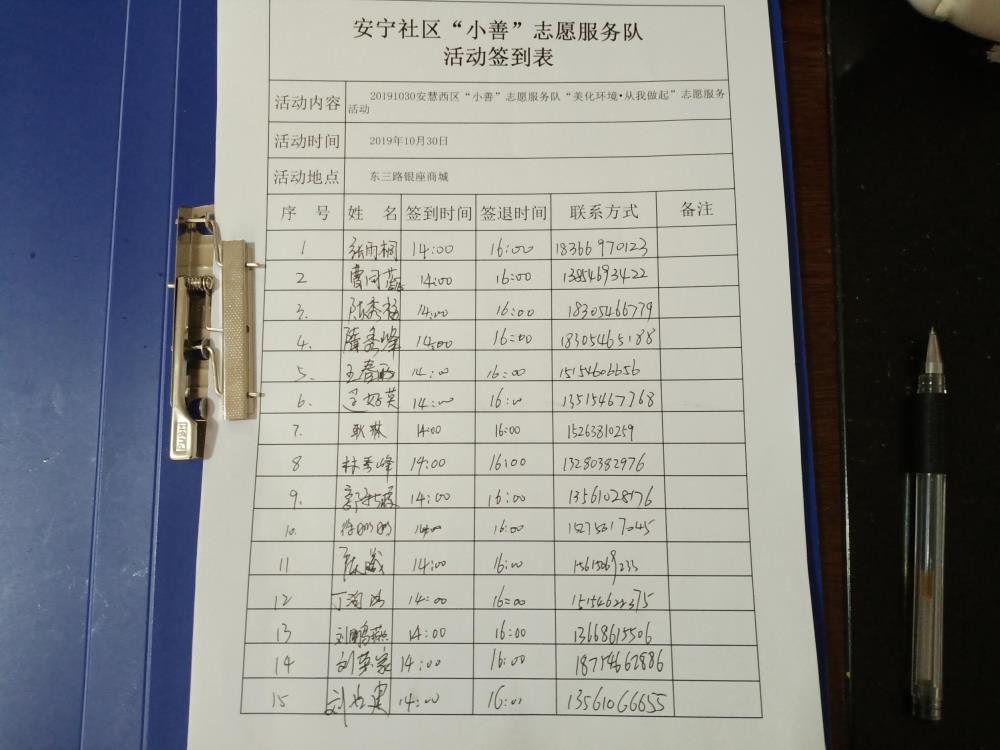 安宁社区“小善”志愿服务队
活动签到表
活动内容 20191030安慧西区“小善”志愿服务队“美化环境•从我做起”志愿服务
活动
活动时间 2019年10月30日
活动地点 东三路银座商城
序 号 姓 名 签到时间 签退时间 联系方式 备注
1 张雨桐 14:00 16:00 18366970123
2 14:00 16:00 13854693422
3. 陈秀梅 14:00 16:00 18305466779
4. 隋秀峰 14:00 16:00 18305465188
5. 14:00 16:00 15154606656
6. 14:00 16:00 13515467768
7. 耿琳 14:00 16:00 15263810259
8 林秀峰 14:00 16:00 13280382976
9. 14:00 16:00 13561028176
10. 14:00 16:00
11 14:00 16:00
12 14:00 16:00
13 刘鹏燕 14:00 16:00 13668615506
14 刘荣家 14:00 16:00 18754662886
15 14:00 16:00 13561066655